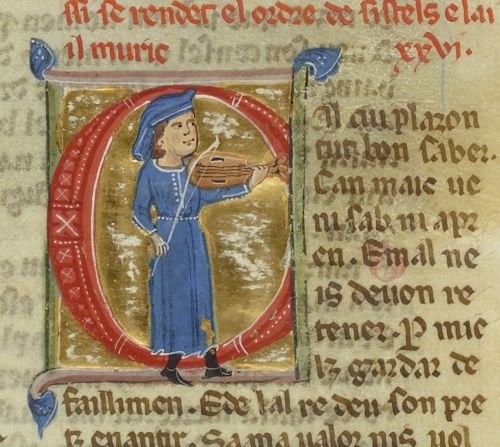 ssi se rendet el ordre de sistels e lai
il muric xxvi.
El cui plazon
tut bon saber.
Can mais ue
ni sab ni apr
en. E mal ne
is deuon re
tener. P mie
lz gardar de
faillimen. E de lal re deu son pre
tz enantir. ualor uol